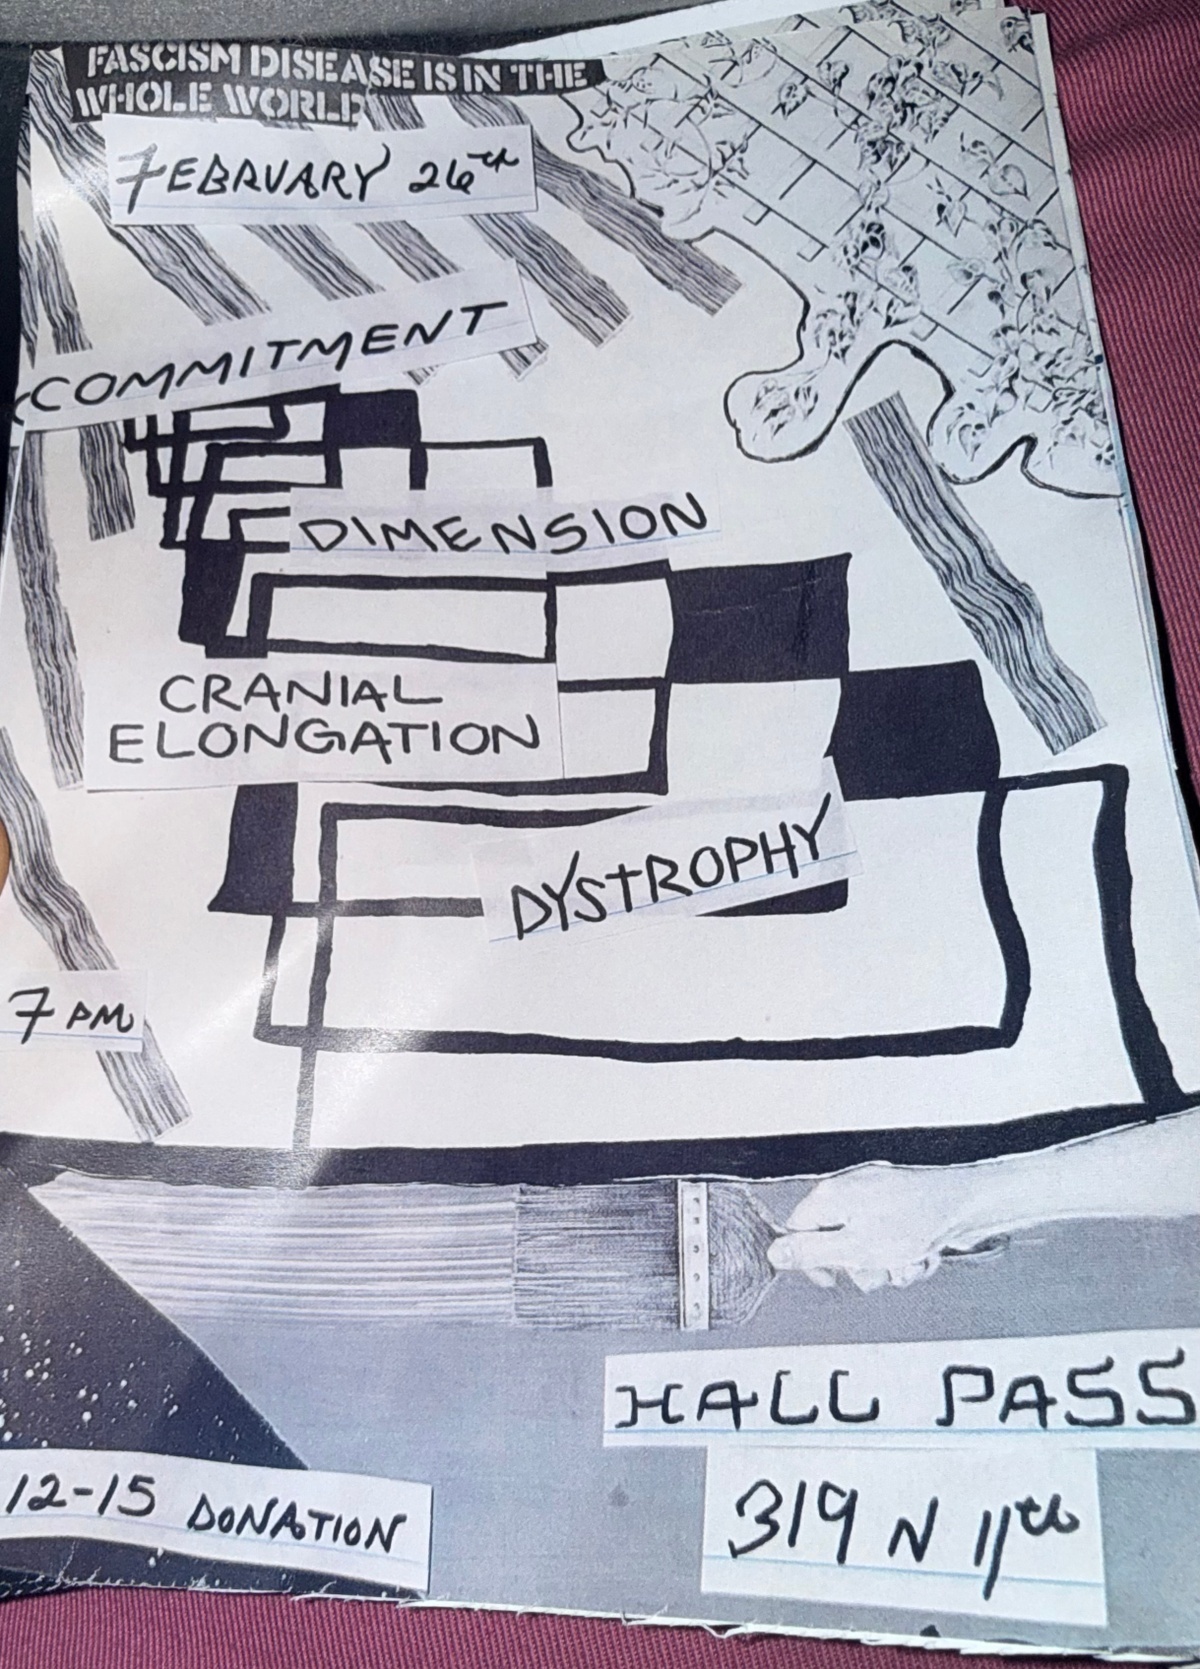 FASCISM DISEASE IS IN THE
WHOLE WORLD
FEBRUARY 26th
COMMITMENT
DIMENSION
CRANIAL
ELONGATION
DYSTROPHY
7 PM
HALL PASS
12-15 DONATION
319 N 11th